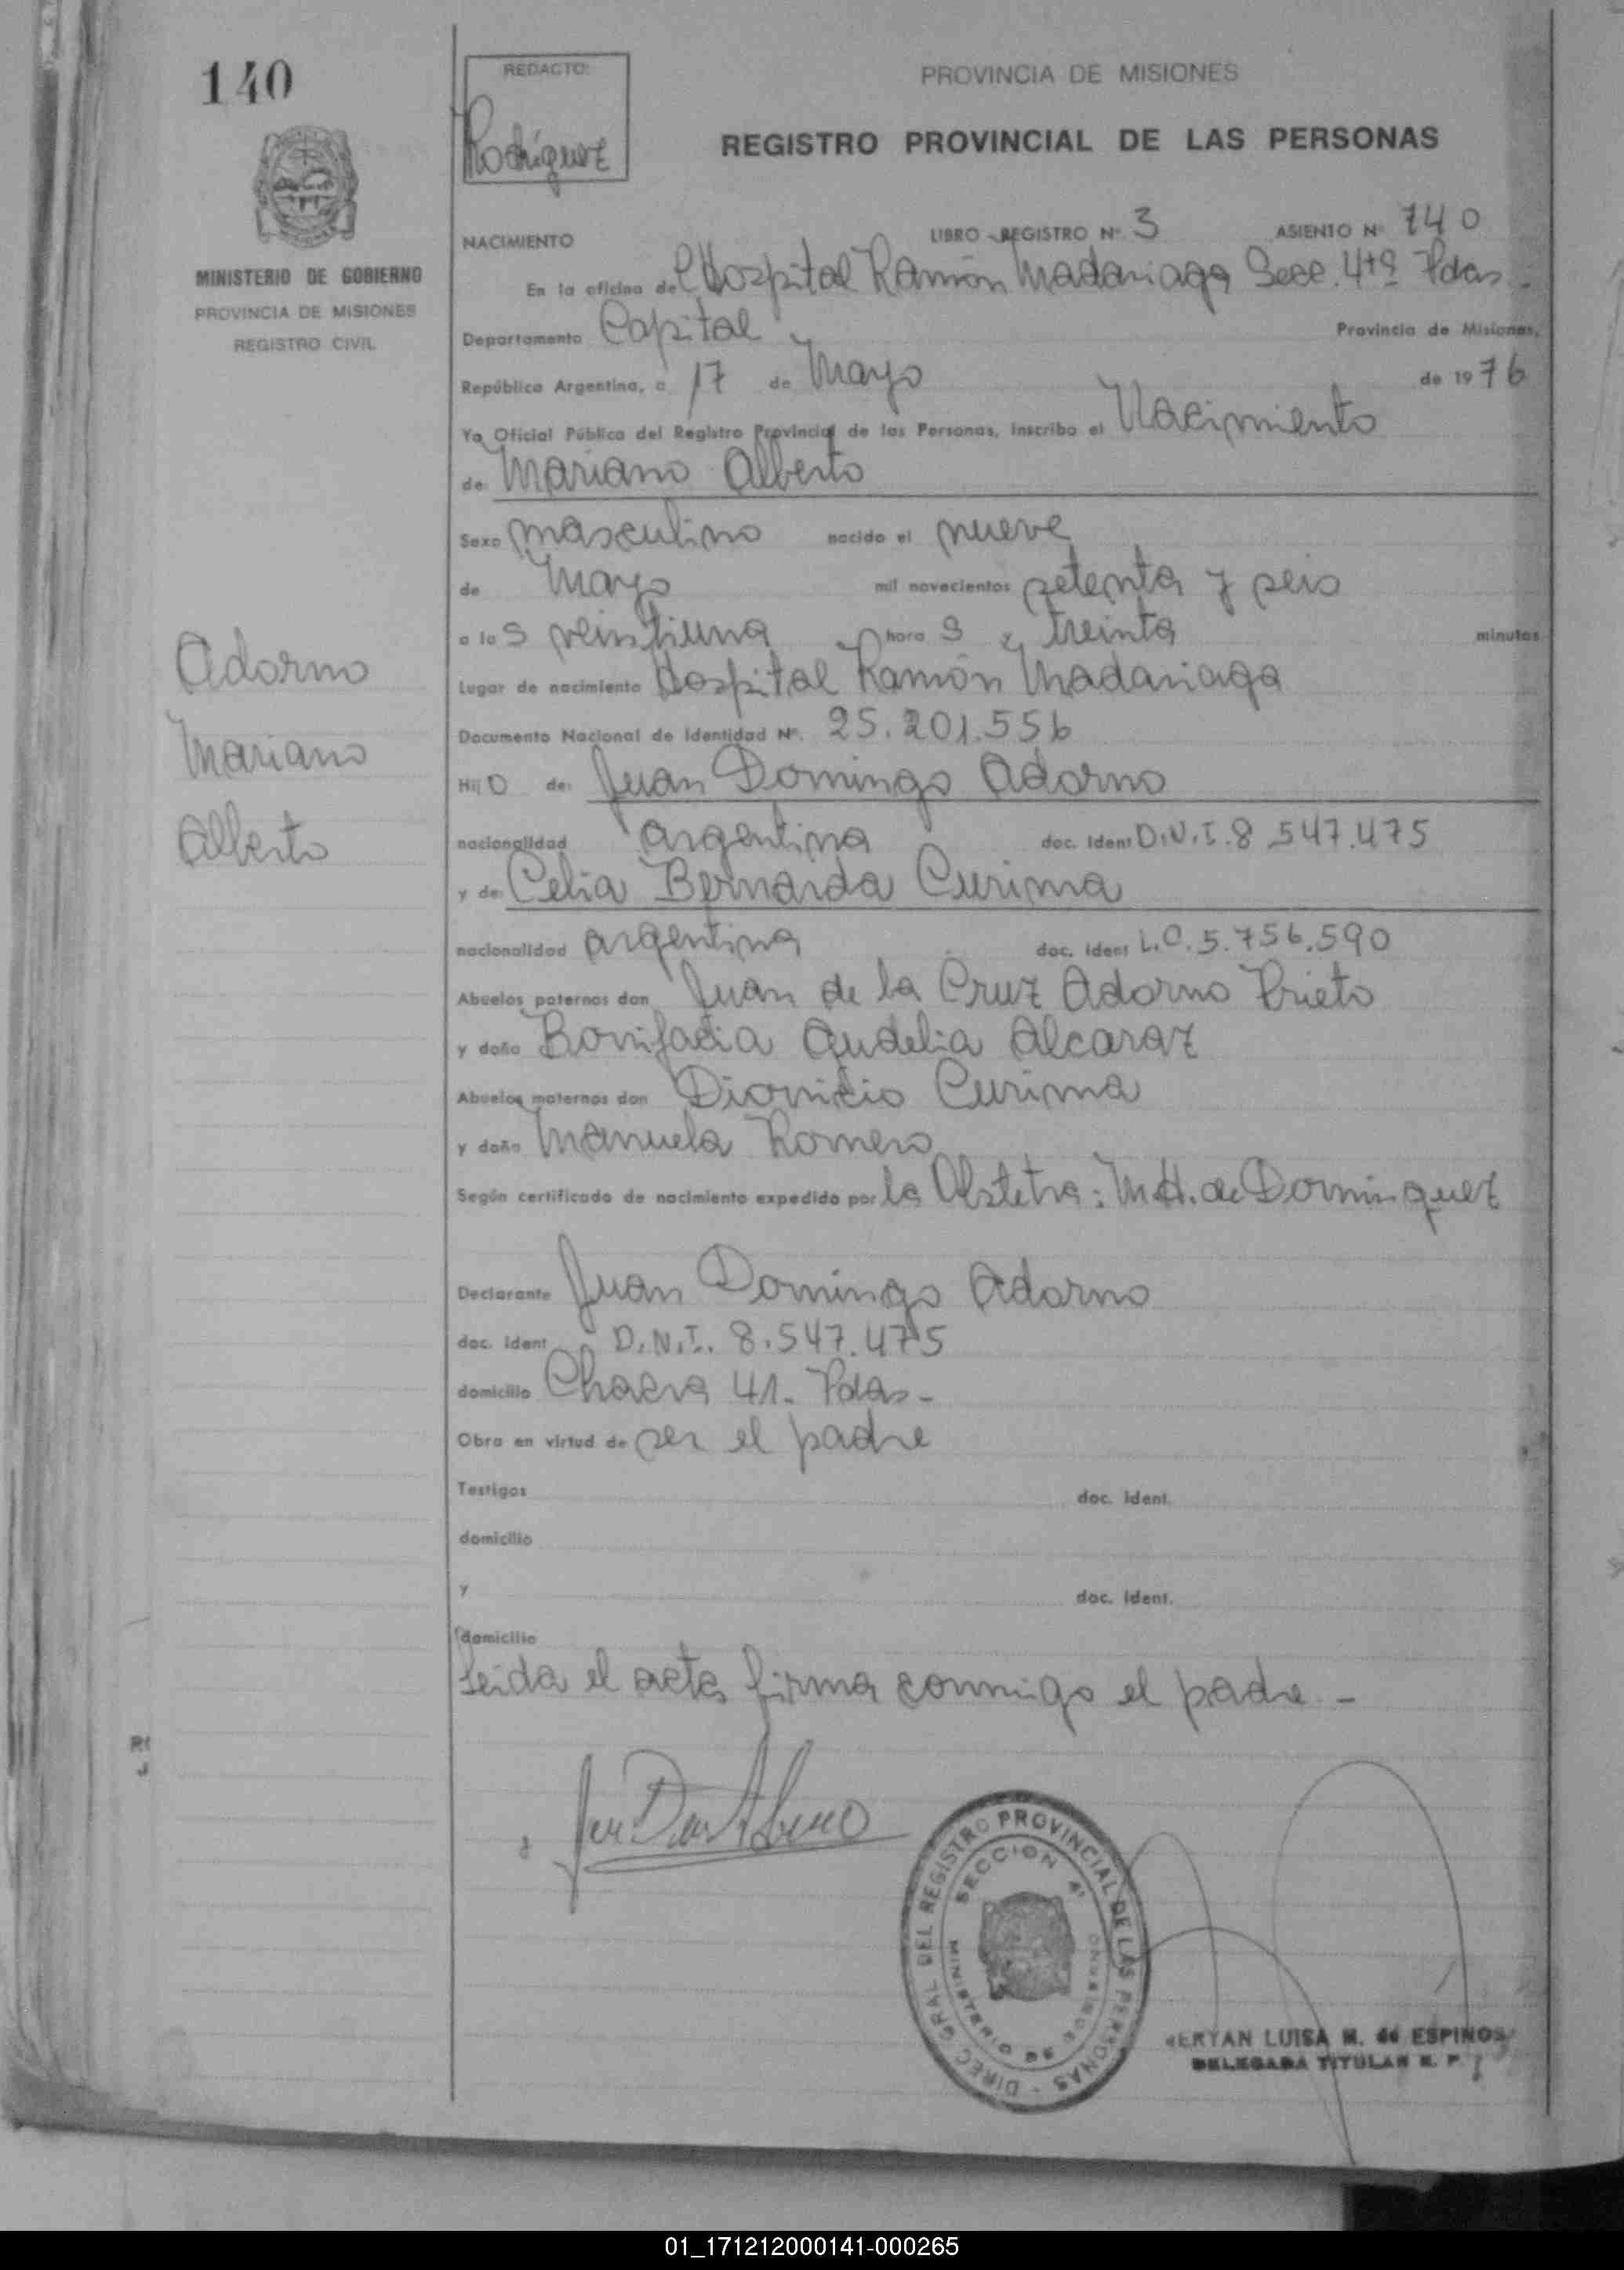 140
REDACTO:
Rodríguez
PROVINCIA DE MISIONES
REGISTRO PROVINCIAL DE LAS PERSONAS
MINISTERIO DE GOBIERNO
PROVINCIA DE MISIONES
REGISTRO CIVIL
NACIMIENTO LIBRO - REGISTRO Nº 3 ASIENTO Nº 740
En la oficina del Hospital Ramón Madariaga Secc. 4ta Pdas -
Departamento Capital Provincia de Misiones,
República Argentina, a 17 de Mayo de 1976
Yo, Oficial Público del Registro Provincial de las Personas, inscribo el Nacimiento
de Mariano Alberto
Sexo masculino nacido el nueve
de Mayo mil novecientos setenta y seis
a las veintiuna horas y treinta minutos
Lugar de nacimiento Hospital Ramón Madariaga
Documento Nacional de Identidad Nº. 25.201.556
Hijo de: Juan Domingo Adorno
nacionalidad argentina doc. ident D.N.I. 8.547.475
y de: Celia Bernarda Curima
nacionalidad argentina doc. ident L.C. 5.756.590
Abuelos paternos don Juan de la Cruz Adorno Prieto
y doña Bonifacia Audelia Alcaraz
Abuelos maternos don Dionicio Curima
y doña Manuela Romero
Según certificado de nacimiento expedido por la Obstetra: M.H. de Dominguez
Declarante Juan Domingo Adorno
doc. ident D.N.I. 8.547.475
domicilio Chacra 41. Pdas -
Obra en virtud de ser el padre
Testigos doc. ident.
domicilio
y doc. ident.
domicilio
Leida el acta, firma conmigo el padre. -
Adorno
Mariano
Alberto
DIREC. GRAL DEL REGISTRO PROVINCIAL DE LAS PERSONAS -
SECCION 4ª
MINISTERIO DE GOBIERNO
LUISA M. de ESPINOSA
DELEGADA TITULAR R. P.
01_171212000141-000265